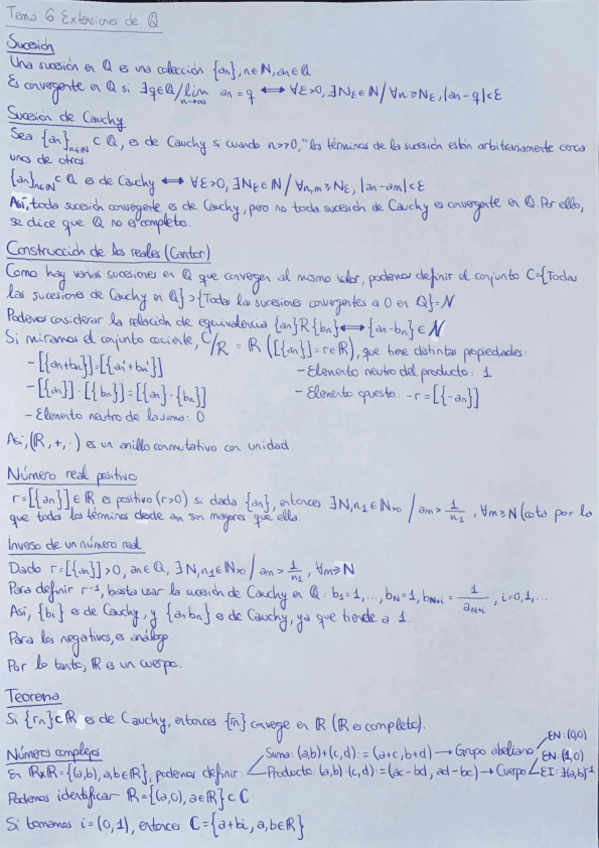 Tema 6 Extensiones de ℚ
Sucesión
Una sucesión en ℚ es una colección {an}, n∈ℕ, an∈ℚ
Es convergente en ℚ si ∃q∈ℚ/lim n→∞ an = q ⟺ ∀ε>0, ∃Nε∈ℕ/∀n≥Nε, |an-q|<ε
Sucesión de Cauchy
Sea {an}n∈ℕ ⊂ ℚ, es de Cauchy si cuando n>>0, "los términos de la sucesión están arbitrariamente cerca
unos de otros.
{an}n∈ℕ ⊂ ℚ es de Cauchy ⟺ ∀ε>0, ∃Nε∈ℕ/∀n,m≥Nε, |an-am|<ε
Así, toda sucesión convergente es de Cauchy, pero no toda sucesión de Cauchy es convergente en ℚ. Por ello,
se dice que ℚ no es completo.
Construcción de los reales (Cantor)
Como hay varias sucesiones en ℚ que convergen al mismo valor, podemos definir el conjunto C={Todas
las sucesiones de Cauchy en ℚ}⊃{Todas las sucesiones convergentes a 0 en ℚ}=N
Podemos considerar la relación de equivalencia {an}R{bn}⟺{an-bn}∈N
Si miramos el conjunto cociente, C/R = ℝ ([{an}]=r∈ℝ), que tiene distintas propiedades:
-[{an+bn}]=[{an'+bn'}] - Elemento neutro del producto: 1
-[{an}]·[{bn}]=[{an}·{bn}] - Elemento opuesto: -r=[{-an}]
- Elemento neutro de la suma: 0
Así, (ℝ,+,·) es un anillo conmutativo con unidad.
Número real positivo
r=[{an}]∈ℝ es positivo (r>0) si dada {an}, entonces ∃N,n1∈ℕ>0 / am>1/n1, ∀m≥N (cota por la
que todos los términos desde am son mayores que ella.
Inverso de un número real
Dado r=[{an}]>0, an∈ℚ, ∃N,n1∈ℕ>0/am>1/n1, ∀m≥N
Para definir r⁻¹, basta usar la sucesión de Cauchy en ℚ: b1=1,...,bN=1, bN+i=1/aN+i, i=0,1,...
Así, {bi} es de Cauchy, y {anbn} es de Cauchy, ya que tiende a 1.
Para los negativos, es análogo.
Por lo tanto, ℝ es un cuerpo.
Teorema
Si {rn}⊂ℝ es de Cauchy, entonces {rn} converge en ℝ (ℝ es completo).
Números complejos
En ℝxℝ={(a,b), a,b∈ℝ}, podemos definir:
Suma: (a,b)+(c,d):=(a+c,b+d)→Grupo abeliano
EN: (0,0)
Producto: (a,b)·(c,d):=(ac-bd, ad-bc)→Cuerpo
EN: (1,0)
EI: ∃(a,b)⁻¹
Podemos identificar ℝ={(a,0), a∈ℝ}⊂ℂ
Si tomamos i=(0,1), entonces ℂ={a+bi, a,b∈ℝ}